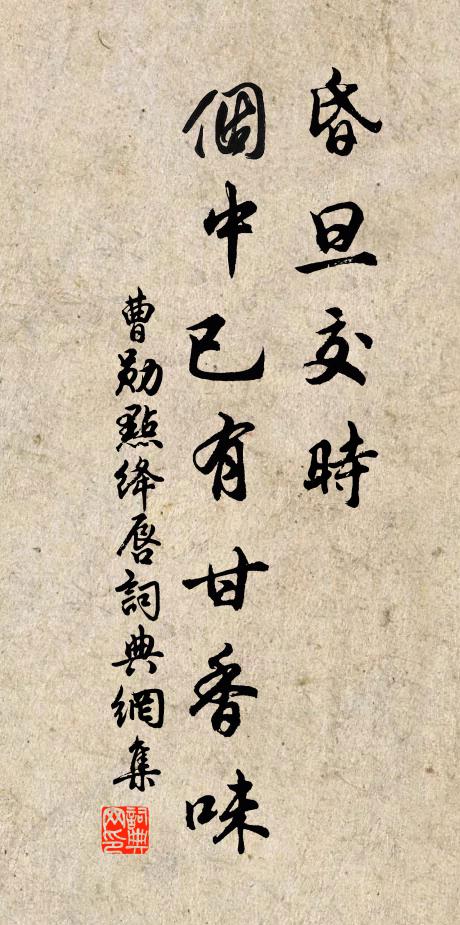 昏旦交時
個中已有甘香味
曹勛點绛唇詞典網集
詞典
网印